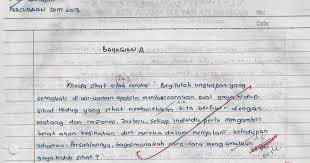 PERCUBAAN SPM 2013
No:
Date:
BAHAGIAN A
"Badan sihat otak cerdas". Begitulah ungkapan yang
seringkali di war-warkan apabila membicarakan soal gaya hidup
sihat. Hidup yang sihat membolehkan kita berfikir dengan
matang dan rasional. Justeru, setiap individu perlu mengambil
berat akan kesihatan diri mereka dalam menjalani kehidupan
seharian. Persoalannya, bagaimanakah cara-cara mengamalkan
gaya hidup sihat ?